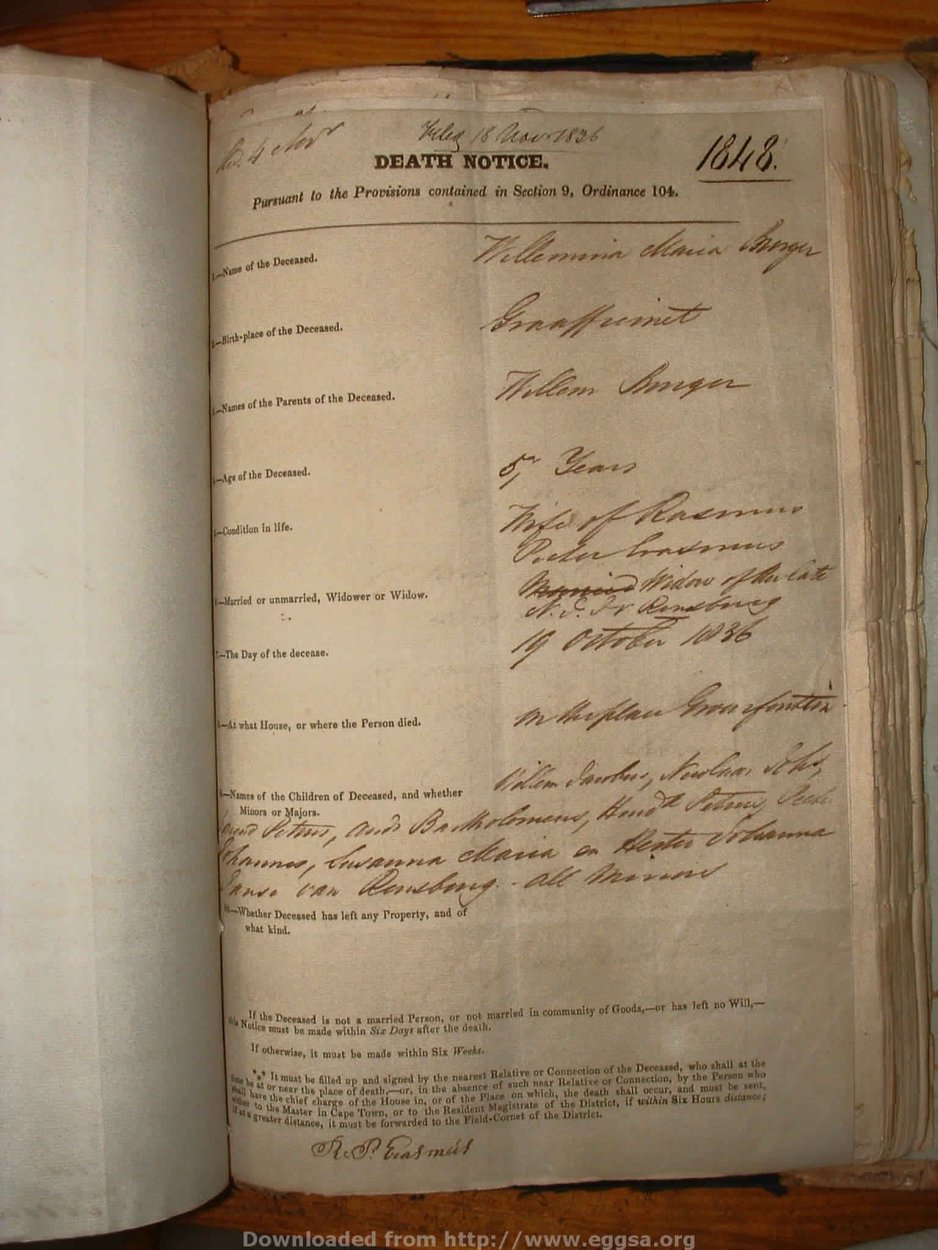 Filed 18 Novr 1836
DEATH NOTICE.
1848.
Pursuant to the Provisions contained in Section 9, Ordinance 104.
1.—Name of the Deceased. Willemina Maria Burger
2.—Birth-place of the Deceased. Graaffreinet
3.—Names of the Parents of the Deceased. Willem Burger
4.—Age of the Deceased. Years
5.—Condition in life. Wife of Rasmus
Pieter Erasmus
6.—Married or unmarried, Widower or Widow. Married Widow of the late
N. J. Jv Rensburg
7.—The Day of the decease. 19 October 1836
8.—At what House, or where the Person died. on the place
9.—Names of the Children of Deceased, and whether Willem Jacobus, Nicolaas Johs,
Minors or Majors.
Petrus, Bartholomeus, Hendk Petrus,
Johannes, Susanna Maria en Hester Johanna
Janse van Rensburg - all Minors
10.—Whether Deceased has left any Property, and of
what kind.
If the Deceased is not a married Person, or not married in community of Goods,—or has left no Will,—
this Notice must be made within Six Days after the death.
If otherwise, it must be made within Six Weeks.
*** It must be filled up and signed by the nearest Relative or Connection of the Deceased, who shall at the
time be at or near the place of death,—or, in the absence of such near Relative or Connection, by the Person who
shall have the chief charge of the House in, or of the Place on which, the death shall occur, and must be sent,
either to the Master in Cape Town, or to the Resident Magistrate of the District, if within Six Hours distance;
if at a greater distance, it must be forwarded to the Field-Cornet of the District.
R. P. Erasmus
Downloaded from http://www.eggsa.org